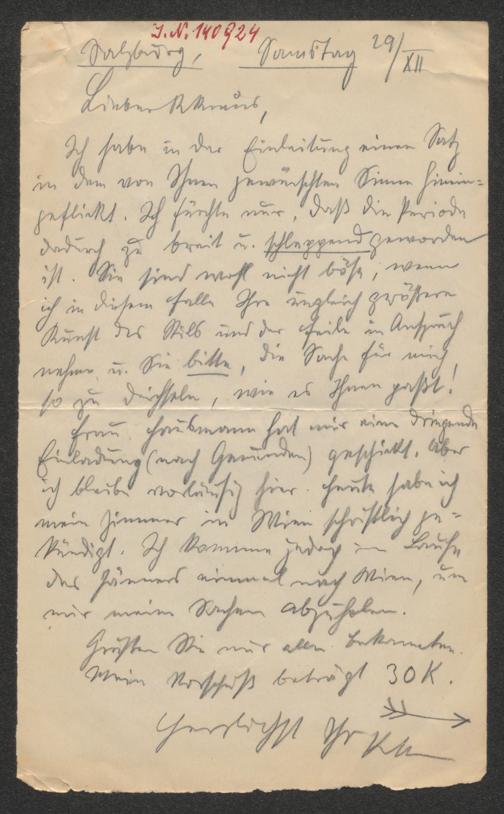 J. N. 140924
Salzburg, Samstag 29/XII
Lieber K Kraus,
Ich habe in der Einleitung einen Satz
in dem von Ihnen gewünschten Sinne hinein-
geflickt. Ich fürchte nur, daß die Periode
dadurch zu breit u. schleppend geworden
ist. Sie sind wohl nicht böse, wenn
ich in diesem Falle Ihre ungleich größere
Kunst des Stils und der Feile in Anspruch
nehme u. Sie bitte, die Sache für mich
so zu drechseln, wie es Ihnen paßt!
Frau Hausmann hat mir eine dringende
Einladung (nach Gmunden) geschickt. Aber
ich bleibe vorläufig hier. Heute habe ich
mein Zimmer in Wien schriftlich ge-
kündigt. Ich komme jedoch im Laufe
des Jänners einmal nach Wien, um
mir meine Sachen abzuholen.
Grüßen Sie mir alle Bekannten.
Mein Vorschuß beträgt 30 K.
Herzlichst Ihr